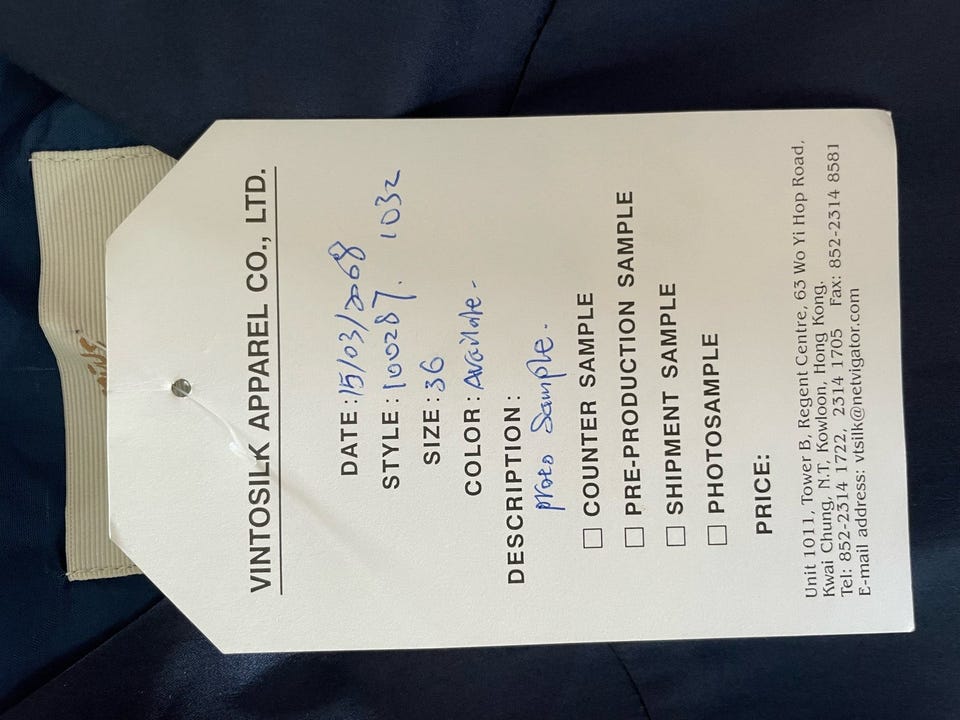 VINTOSILK APPAREL CO., LTD.
DATE: 15/03/2008
STYLE: 100287. 1032
SIZE: 36
COLOR: Available-
DESCRIPTION:
proto sample.
☐ COUNTER SAMPLE
☐ PRE-PRODUCTION SAMPLE
☐ SHIPMENT SAMPLE
☐ PHOTOSAMPLE
PRICE:
Unit 1011, Tower B, Regent Centre, 63 Wo Yi Hop Road,
Kwai Chung, N.T, Kowloon, Hong Kong.
Tel: 852-2314 1722, 2314 1705 Fax: 852-2314 8581
E-mail address: vtsilk@netvigator.com